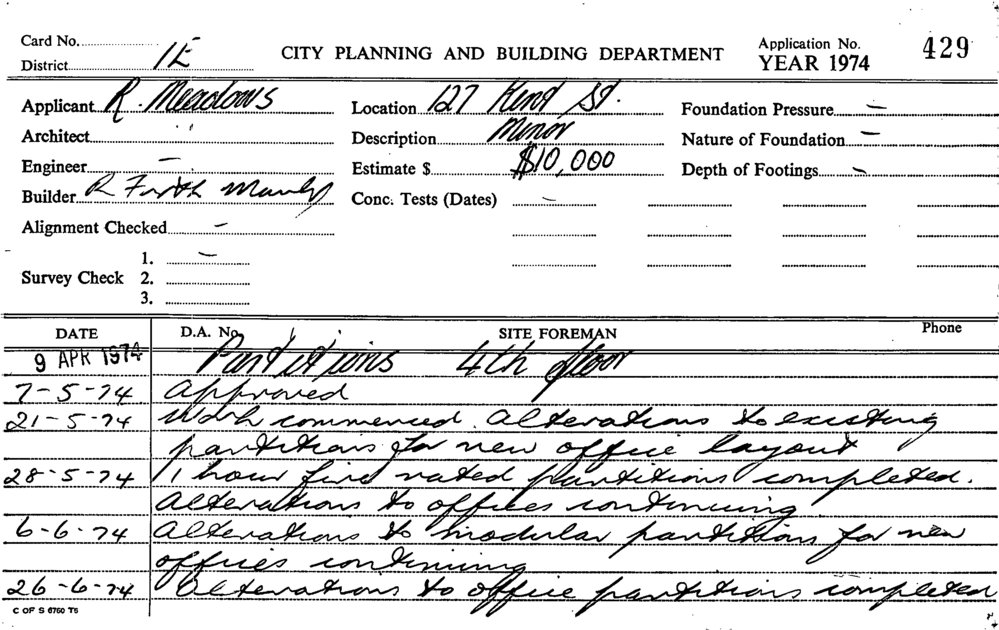 Card No.
District 1E
CITY PLANNING AND BUILDING DEPARTMENT
Application No. 429
YEAR 1974
Applicant R. Meadows
Location 127 Kent St.
Foundation Pressure –
Architect
Description Minor
Nature of Foundation –
Engineer –
Estimate $ $10,000
Depth of Footings –
Builder R Firth Manly
Conc. Tests (Dates) –
Alignment Checked –
Survey Check 1. –
2.
3.
DATE D.A. No. SITE FOREMAN Phone
9 APR 1974 Partitions 4th floor
7-5-74 Approved
21-5-74 Work commenced. Alterations to existing
partitions for new office layout
28-5-74 1 hour fire rated partitions completed.
Alterations to offices continuing
6-6-74 Alterations to modular partitions for new
offices continuing
26-6-74 Alterations to office partitions completed
C OF S 6760 T5